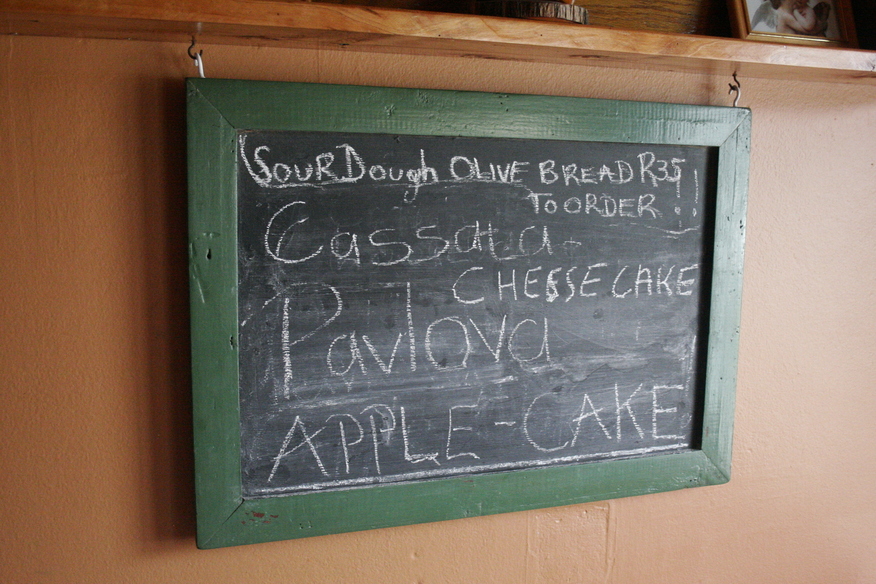 SOURDough OLIVE BREAD R35
TO ORDER !!
Cassata
CHEESECAKE
Pavlova
APPLE-CAKE